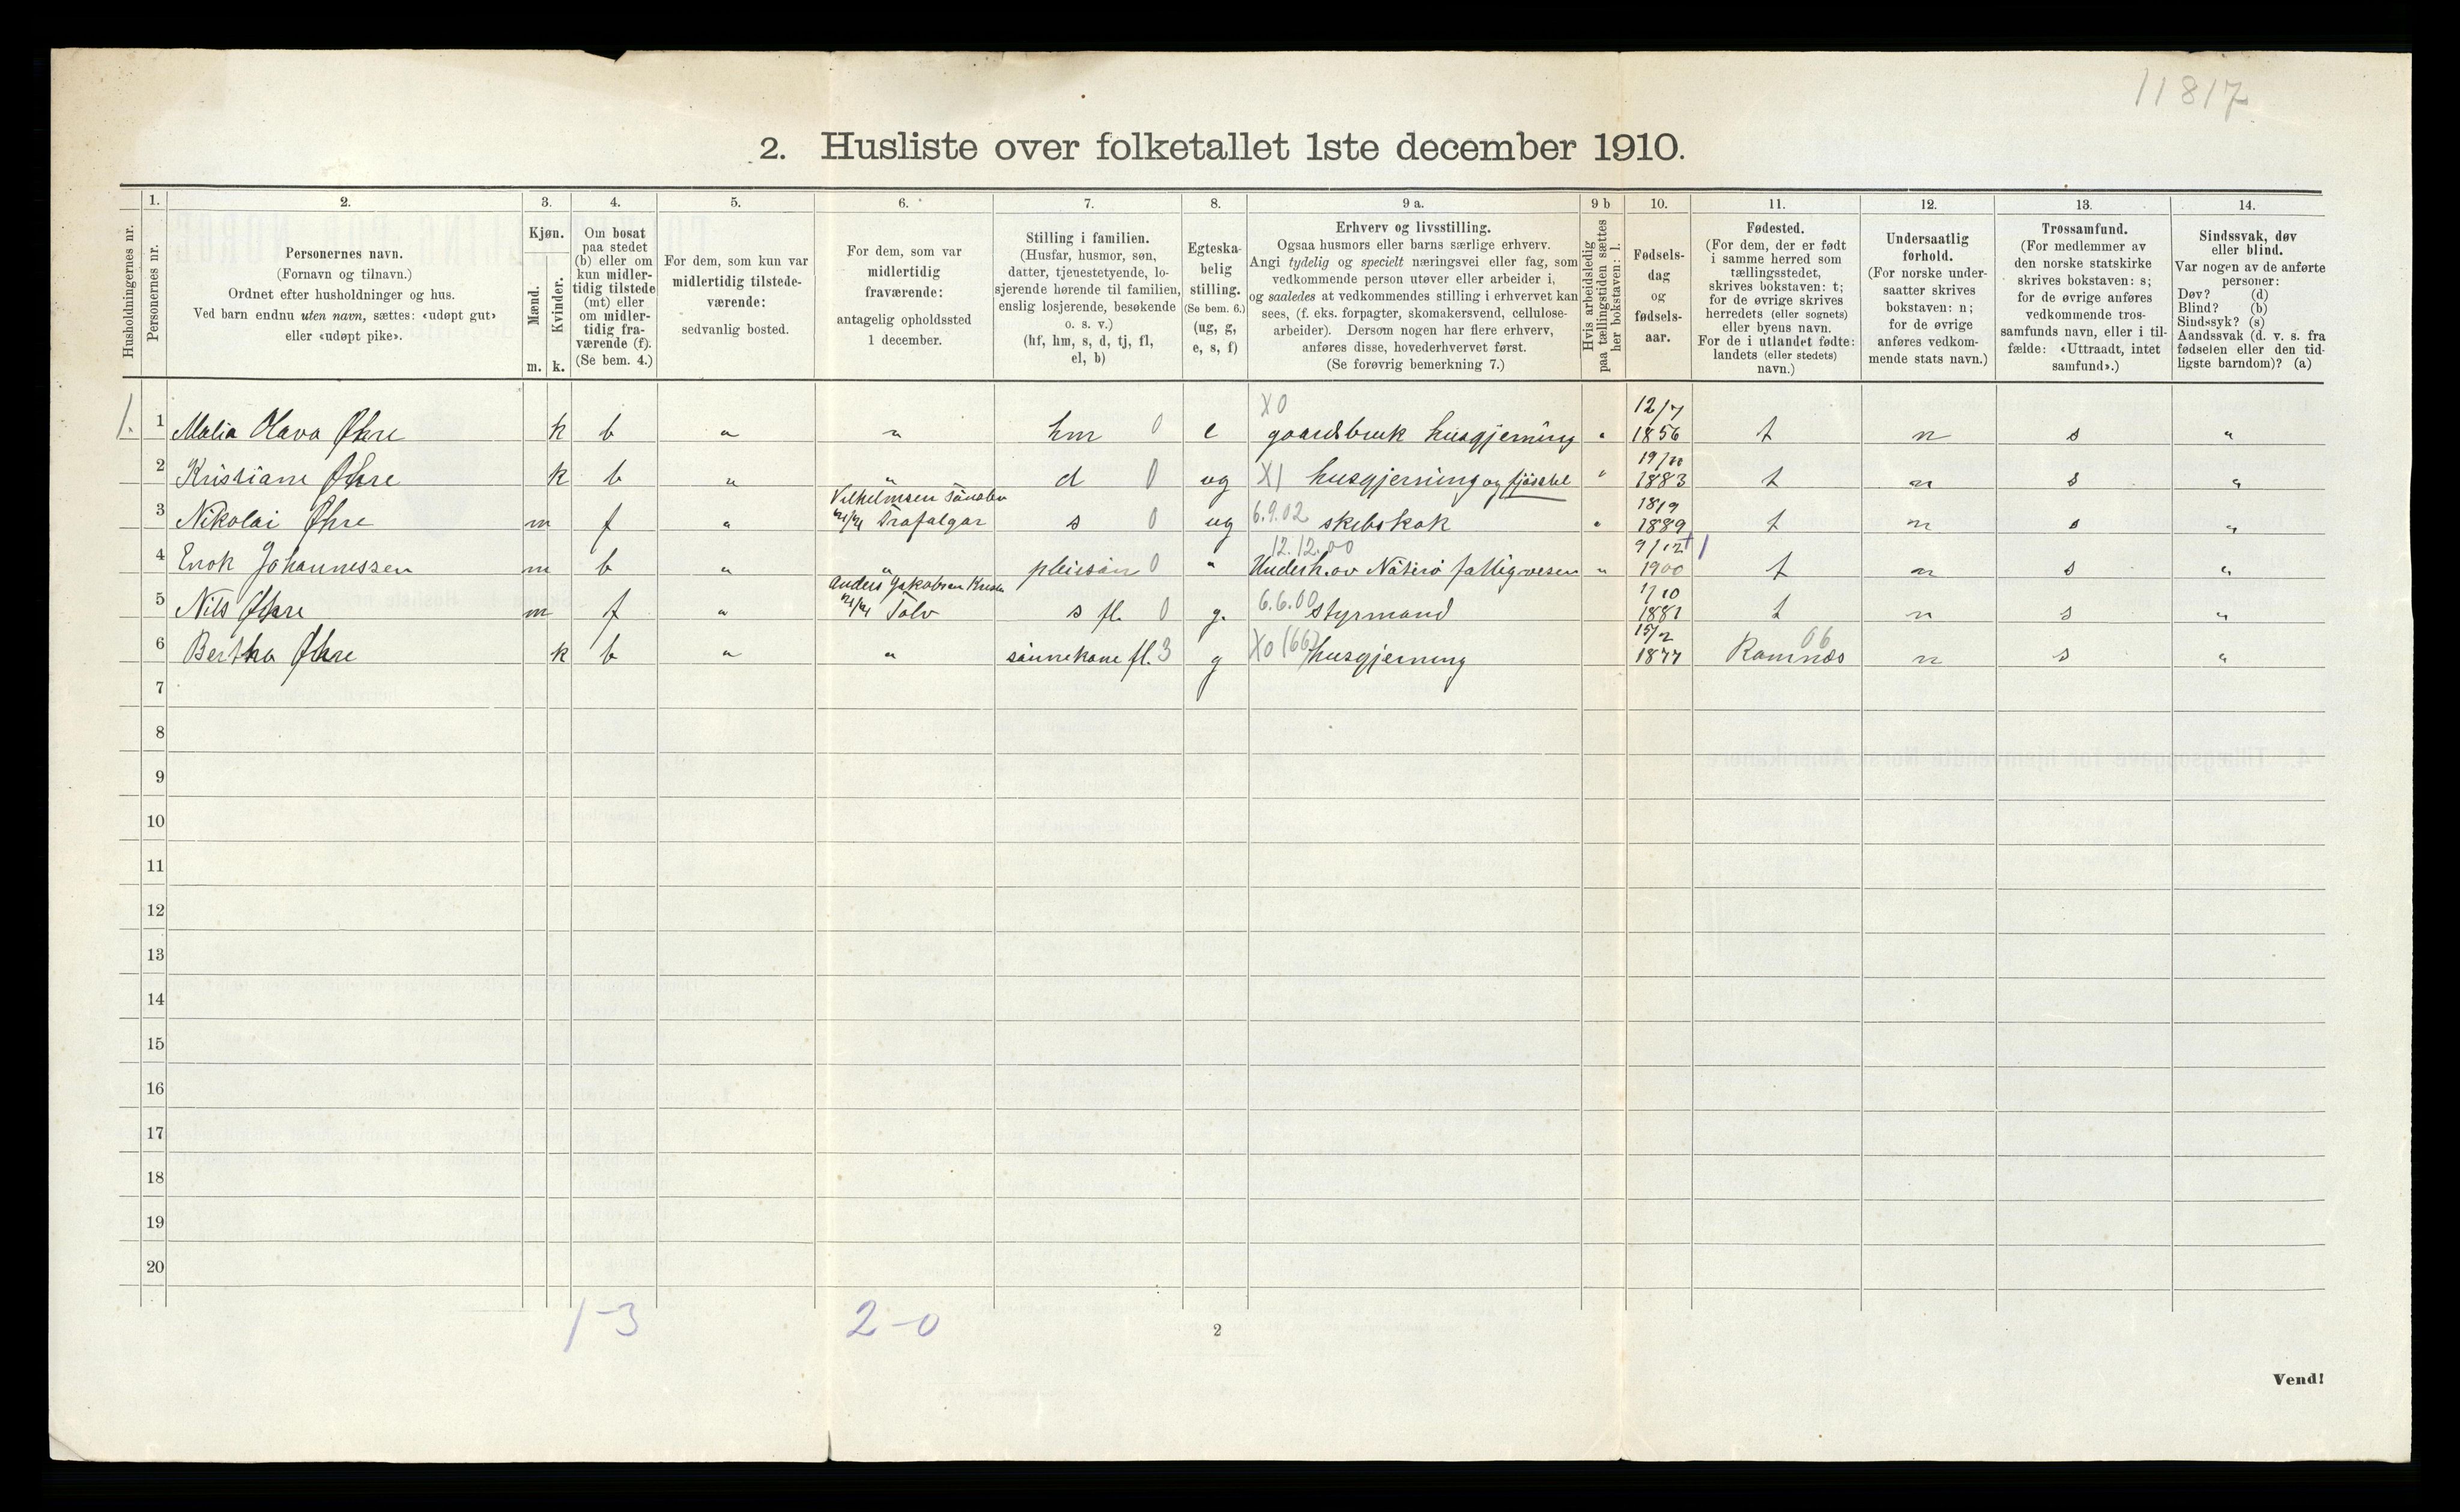 11817
2. Husliste over folketallet 1ste december 1910.
Husholdningernes nr.
1.
Personernes nr.
2.
Personernes navn.
(Fornavn og tilnavn.)
Ordnet efter husholdninger og hus.
Ved barn endnu uten navn, sættes: «udøpt gut»
eller «udøpt pike».
3.
Kjøn.
Mænd.
Kvinder.
m. k.
4.
Om bosat
paa stedet
(b) eller om
kun midler-
tidig tilstede
(mt) eller
om midler-
tidig fra-
værende (f).
(Se bem. 4.)
5.
For dem, som kun var
midlertidig tilstede-
værende:
sedvanlig bosted.
6.
For dem, som var
midlertidig
fraværende:
antagelig opholdssted
1 december.
7.
Stilling i familien.
(Husfar, husmor, søn,
datter, tjenestetyende, lo-
sjerende hørende til familien,
enslig losjerende, besøkende
o. s. v.)
(hf, hm, s, d, tj, fl,
el, b)
8.
Egteska-
belig
stilling.
(Se bem. 6.)
(ug, g,
e, s, f)
9 a.
Erhverv og livsstilling.
Ogsaa husmors eller barns særlige erhverv.
Angi tydelig og specielt næringsvei eller fag, som
vedkommende person utøver eller arbeider i,
og saaledes at vedkommendes stilling i erhvervet kan
sees, (f. eks. forpagter, skomakersvend, cellulose-
arbeider). Dersom nogen har flere erhverv,
anføres disse, hovederhvervet først.
(Se forøvrig bemerkning 7.)
9 b
Hvis arbeidsledig
paa tællingstiden sættes
her bokstaven: l.
10.
Fødsels-
dag
og
fødsels-
aar.
11.
Fødested.
(For dem, der er født
i samme herred som
tællingsstedet,
skrives bokstaven: t;
for de øvrige skrives
herredets (eller sognets)
eller byens navn.
For de i utlandet fødte:
landets (eller stedets)
navn.)
12.
Undersaatlig
forhold.
(For norske under-
saatter skrives
bokstaven: n;
for de øvrige
anføres vedkom-
mende stats navn.)
13.
Trossamfund.
(For medlemmer av
den norske statskirke
skrives bokstaven: s;
for de øvrige anføres
vedkommende tros-
samfunds navn, eller i til-
fælde: «Uttraadt, intet
samfund».)
14.
Sindssvak, døv
eller blind.
Var nogen av de anførte
personer:
Døv? (d)
Blind? (b)
Sindssyk? (s)
Aandssvak (d. v. s. fra
fødselen eller den tid-
ligste barndom)? (a)
X0 12/7
1. 1 Malia Olava Øhre k b " " hm 0 e gaardsbruk husgjerning " 1856 t n s "
2 Kristiane Øhre k b " " d 0 ug X1 husgjerning og fjøsstel " 1883 t n s "
Vilhelmsen Tønsberg 18/9
3 Nikolai Øhre m f " Trafalgar s 0 ug 6.9.02 skibskok " 1889 t n s "
12.12.00 9/12
4 Enok Johannessen m b " " pleiesøn 0 " Underh. av Nøterø fattigvesen " 1900 t n s "
Anders Jakobsen 1/10
5 Nils Øhre m f " Tolv s fl. 0 g. 6.6.00 Styrmand 1881 t n s "
15/2 06
6 Bertha Øhre k b " " sønnekone fl. 3 g X0 (66) husgjerning 1877 Ramnæs n s "
7
8
9
10
11
12
13
14
15
16
17
18
19
20
1-3 2-0
2
Vend!